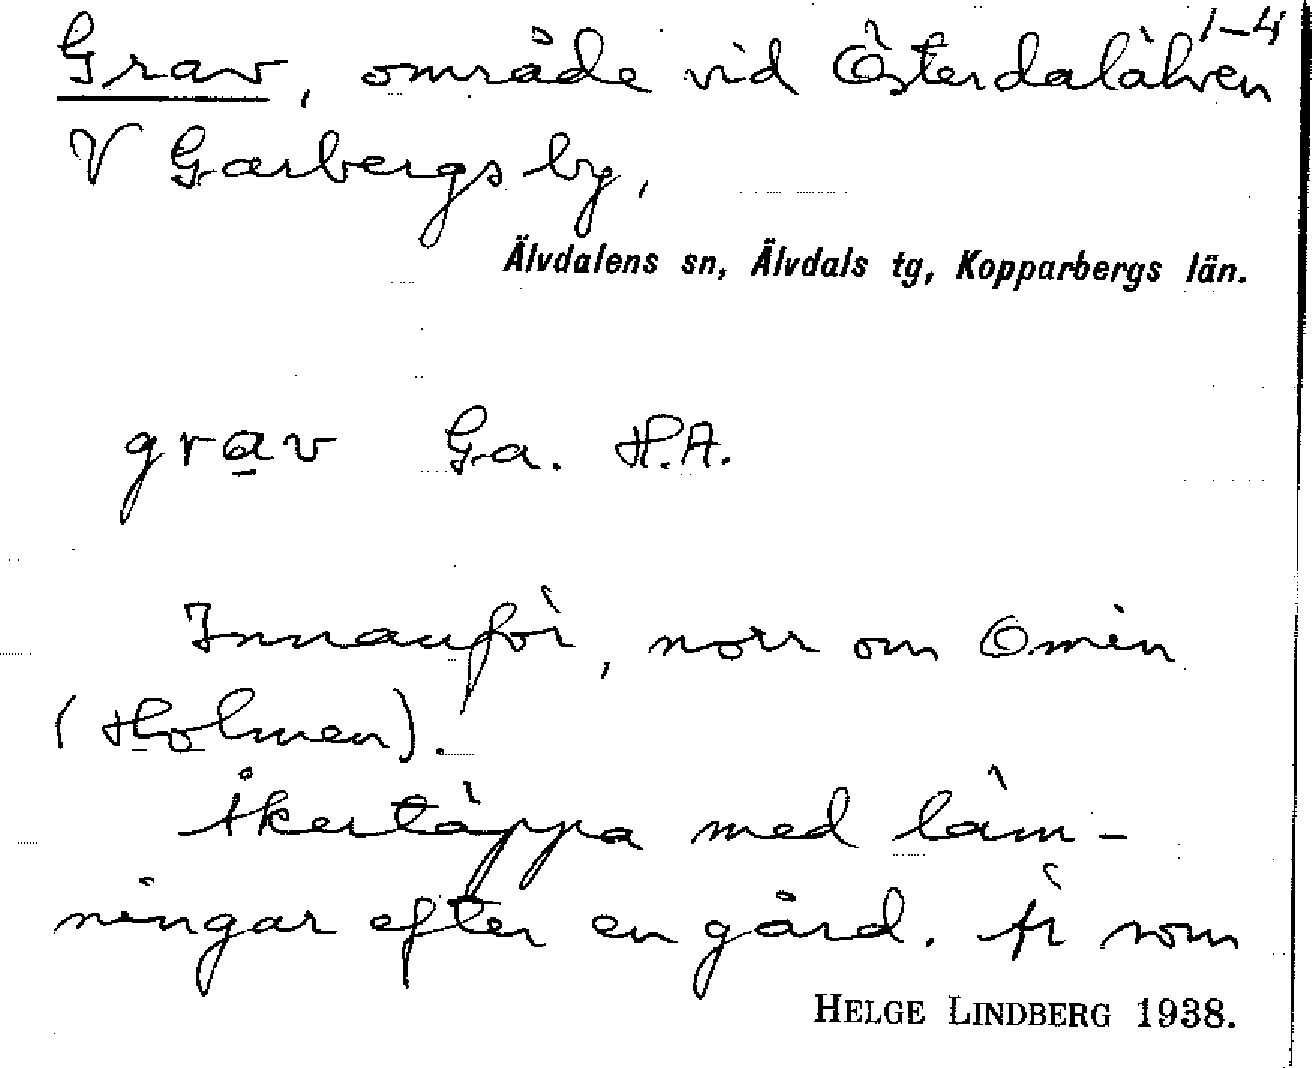 1-4
Grav, område vid Österdalälven
V Garbergs by,
Älvdalens sn, Älvdals tg, Kopparbergs län.
grav Ga. H.A.
Innanför, norr om Omen
(Holmen).
Åkertäppa med läm-
ningar efter en gård. Är som
HELGE LINDBERG 1938.